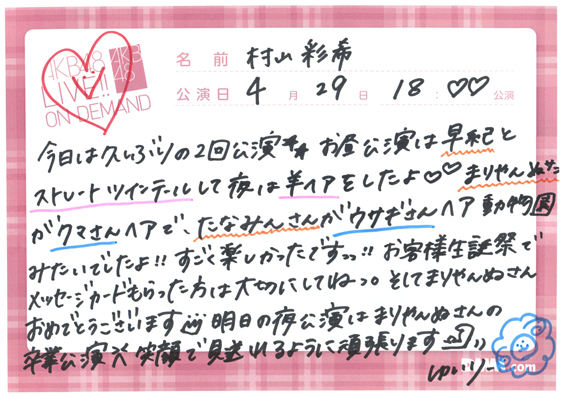 AKB48
LIVE!!
ON DEMAND
AKB
48
名前 村山彩希
公演日 4月29日 18:♡♡公演
今日は久しぶりの2回公演** お昼公演は早紀と
ストレートツインテールして夜は羊ヘアをしたよ♡♡ まりやんぬさん
がクマさんヘアで、たなみんさんがウサギさんヘア 動物園
みたいでしたよ!! すごく楽しかったですっっ!! お客様生誕祭で
メッセージカードもらった方は大切にしてねっ。そしてまりやんぬさん
おめでとうございます 明日の夜公演はまりやんぬさんの
卒業公演 笑顔で見送れるように頑張ります
.com
ゆいりー